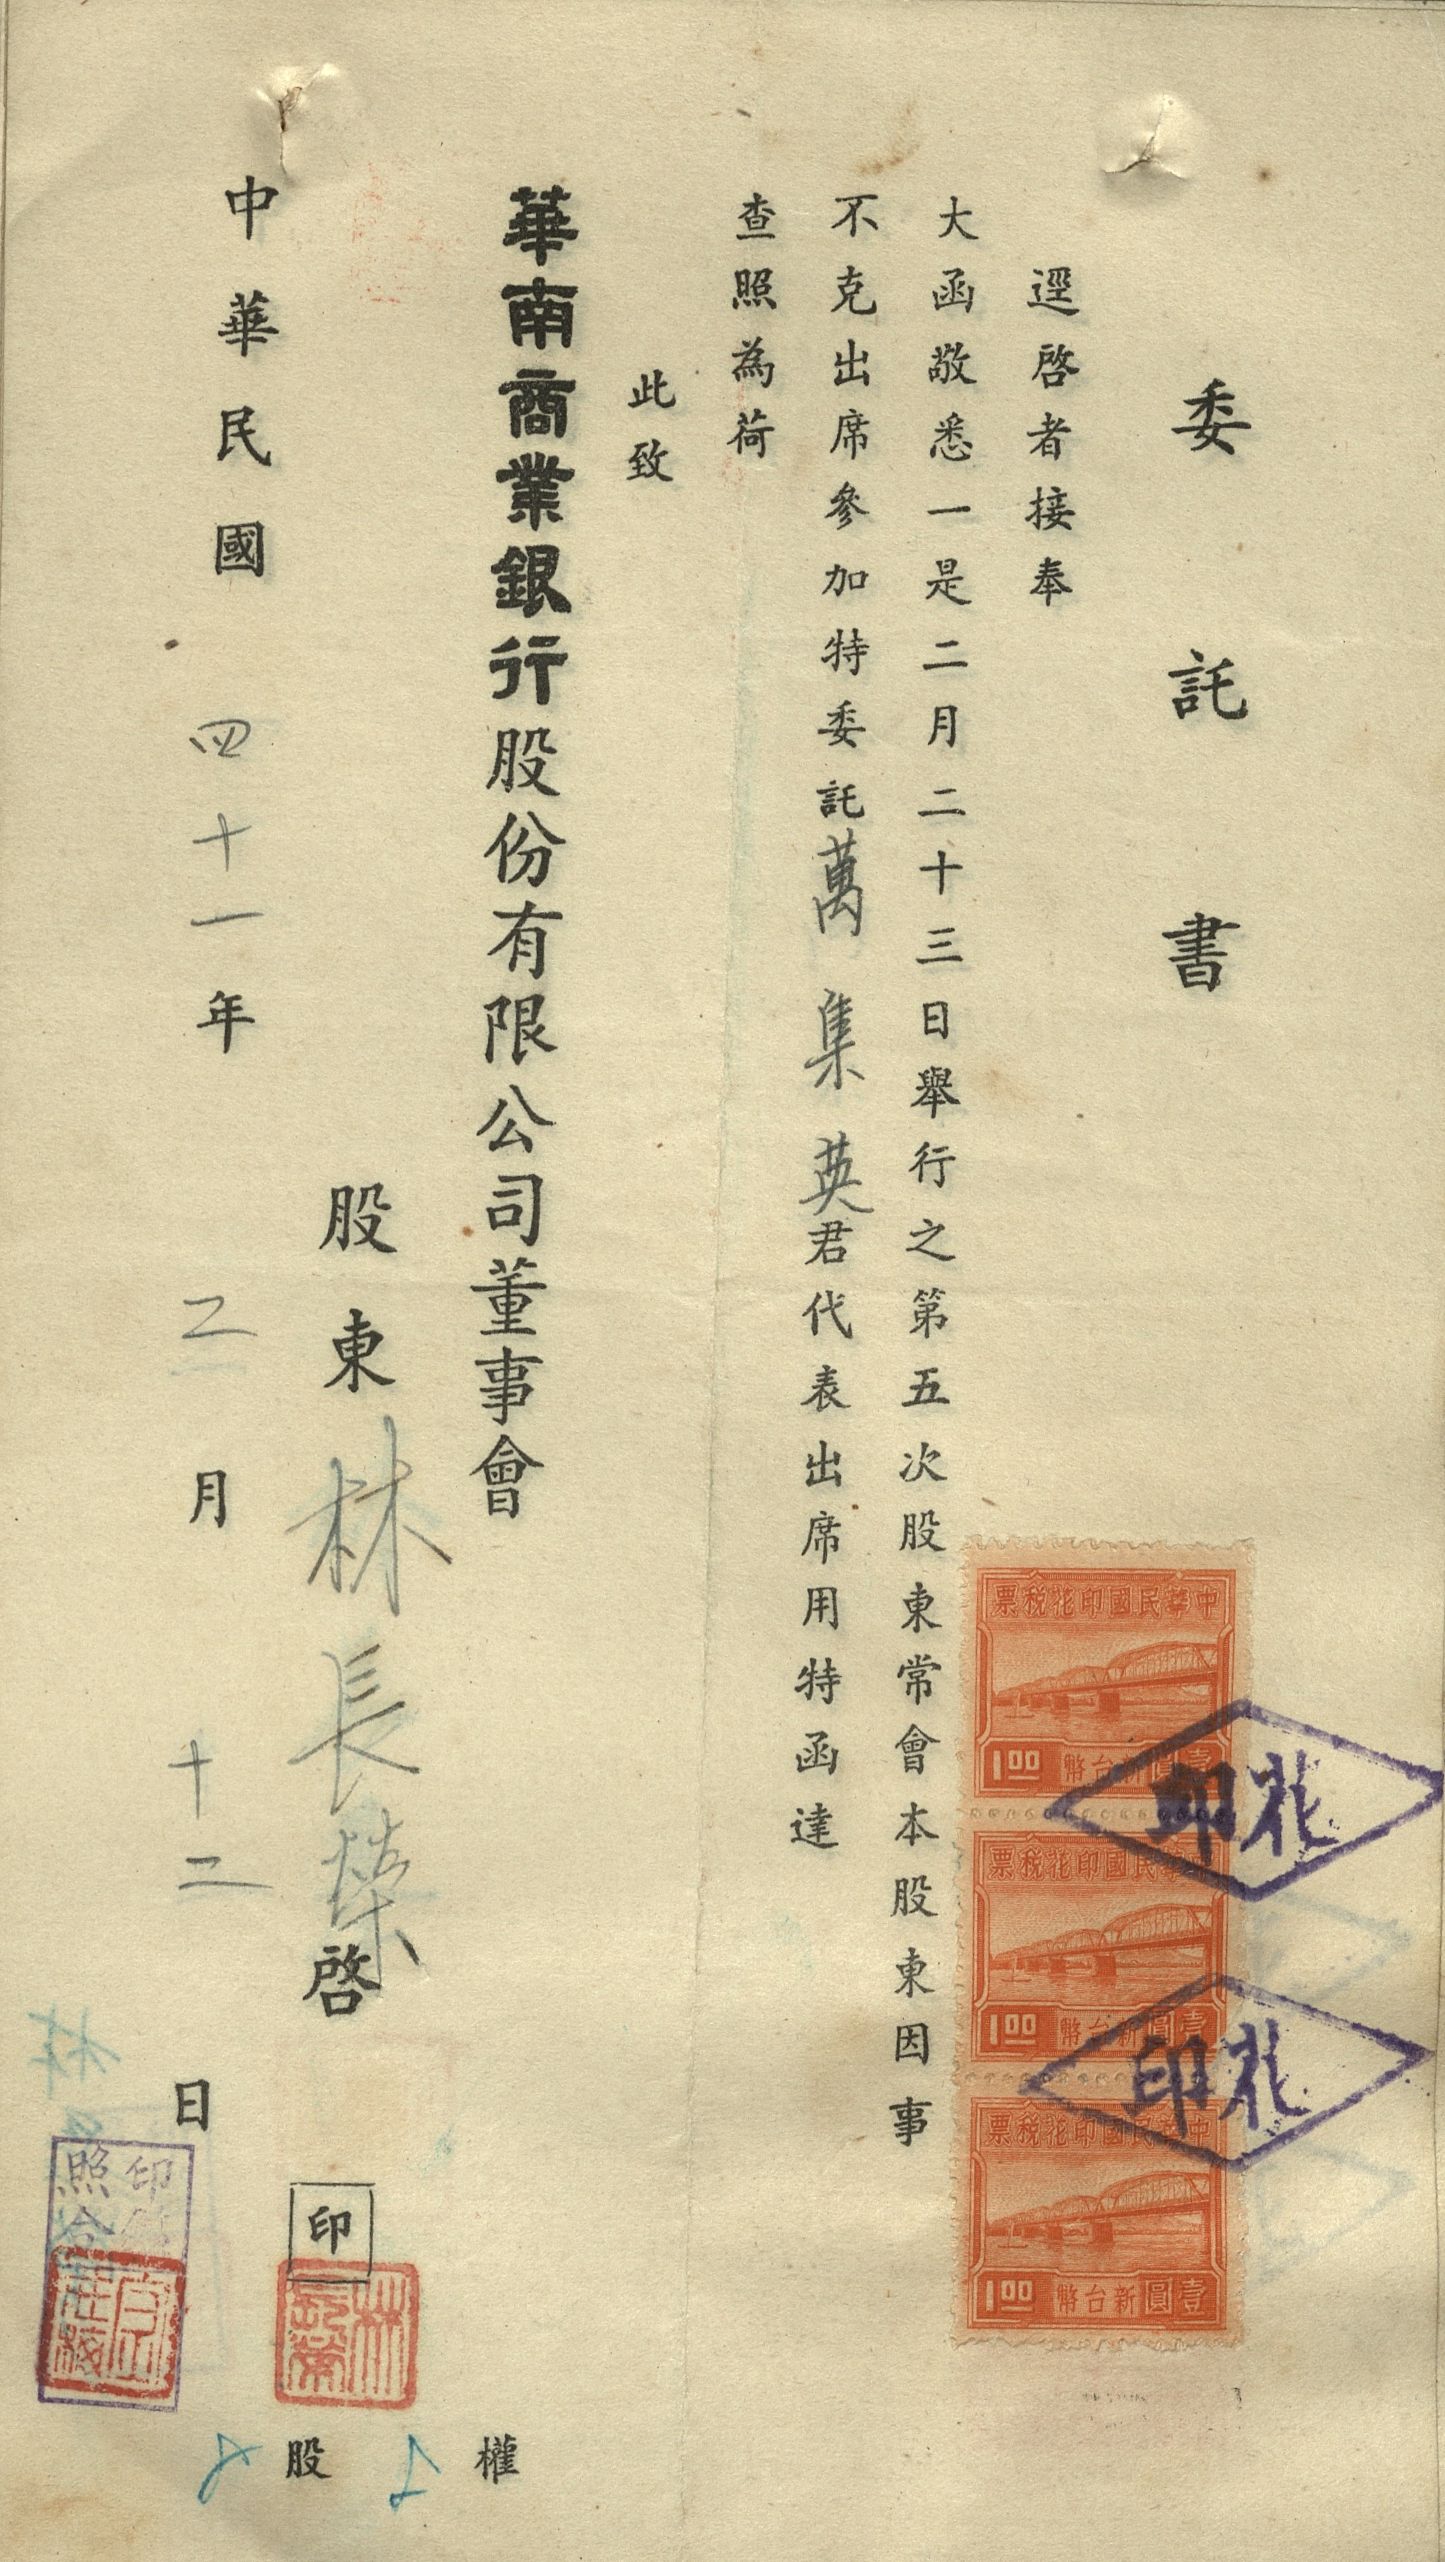 委託書
逕啓者接奉
大函敬悉一是二月二十三日舉行之第五次股東常會本股東因事
不克出席參加特委託萬集英君代表出席用特函達
查照為荷
此致
華南商業銀行股份有限公司董事會
股東林長榮啓
印
林長榮
中華民國四十一年二月十二日
權
股
中華民國印花稅票
1.00 新台幣壹圓
中華民國印花稅票
1.00 新台幣壹圓
中華民國印花稅票
1.00 新台幣壹圓
花印
花印